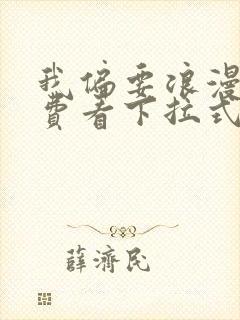 我偏要浪漫
費看下拉式
薛濟民